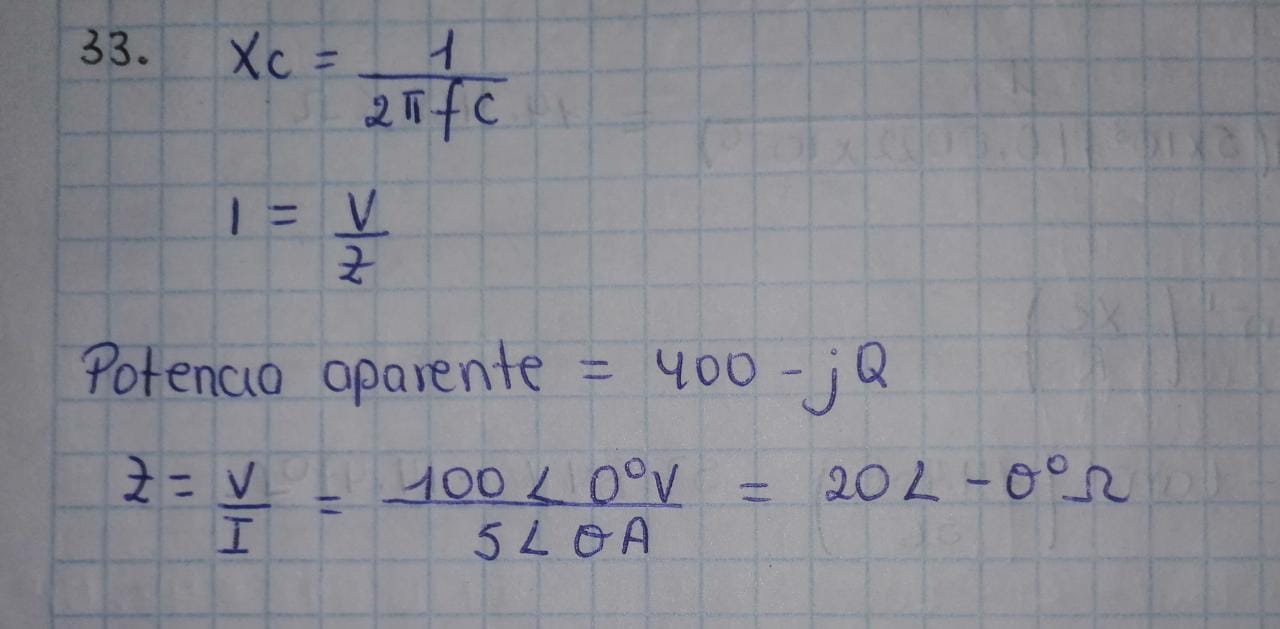 33. Xc = 1 / 2πfC
I = V / Z
Potencia aparente = 400 - jQ
Z = V / I = 100 ∠ 0° V / 5 ∠ θ A = 20 ∠ -θ° Ω